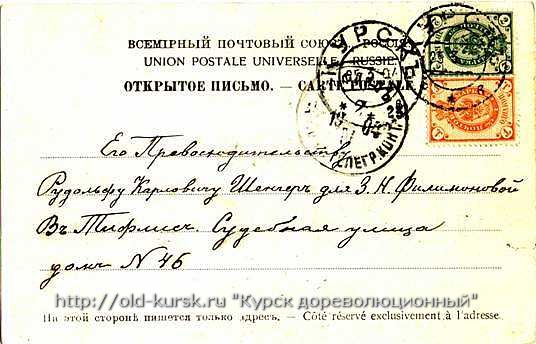 ВСЕМІРНЫЙ ПОЧТОВЫЙ СОЮЗЪ. РОССІЯ.
UNION POSTALE UNIVERSELLE. RUSSIE.
ОТКРЫТОЕ ПИСЬМО. — CARTE POSTALE.
КУРСКЪ
Его Превосходительству
Рудольфу Карловичу Шенгеръ для З. Н. Филимоновой
Въ Тифлисъ. Судебная улица
домъ N 46
http://old-kursk.ru "Курск дореволюционный"
На этой сторонѣ пишется только адресъ. — Côté réservé exclusivement à l'adresse.